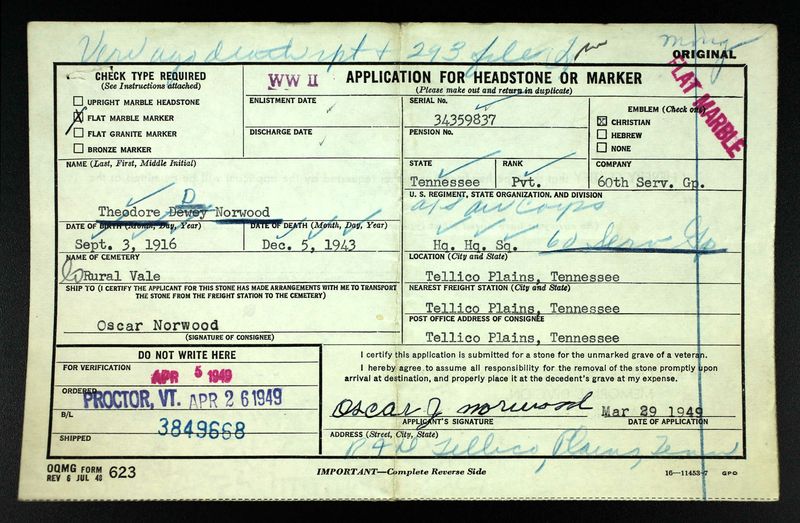 293 filed
ORIGINAL
CHECK TYPE REQUIRED
(See Instructions attached)
UPRIGHT MARBLE HEADSTONE
FLAT MARBLE MARKER
FLAT GRANITE MARKER
BRONZE MARKER
WW II
APPLICATION FOR HEADSTONE OR MARKER
(Please make out and return in duplicate)
ENLISTMENT DATE
DISCHARGE DATE
SERIAL No.
34359837
PENSION No.
EMBLEM (Check one)
CHRISTIAN
HEBREW
NONE
FLAT MARBLE
NAME (Last, First, Middle Initial)
D
Theodore Dewey Norwood
STATE
Tennessee
RANK
Pvt.
COMPANY
60th Serv. Gp.
U. S. REGIMENT, STATE ORGANIZATION, AND DIVISION
a/s air Corps
Hq. Hq. Sq. 60 Serv Gp
DATE OF BIRTH (Month, Day, Year)
Sept. 3, 1916
DATE OF DEATH (Month, Day, Year)
Dec. 5, 1943
NAME OF CEMETERY
Rural Vale
LOCATION (City and State)
Tellico Plains, Tennessee
SHIP TO (I CERTIFY THE APPLICANT FOR THIS STONE HAS MADE ARRANGEMENTS WITH ME TO TRANSPORT
THE STONE FROM THE FREIGHT STATION TO THE CEMETERY)
NEAREST FREIGHT STATION (City and State)
Tellico Plains, Tennessee
Oscar Norwood
(SIGNATURE OF CONSIGNEE)
POST OFFICE ADDRESS OF CONSIGNEE
Tellico Plains, Tennessee
DO NOT WRITE HERE
FOR VERIFICATION
APR 5 1949
ORDERED
PROCTOR, VT. APR 26 1949
B/L
3849668
SHIPPED
I certify this application is submitted for a stone for the unmarked grave of a veteran.
I hereby agree to assume all responsibility for the removal of the stone promptly upon
arrival at destination, and properly place it at the decedent's grave at my expense.
Oscar J Norwood
Mar 29 1949
APPLICANT'S SIGNATURE
DATE OF APPLICATION
ADDRESS (Street, City, State)
Tellico Plains, Tenn
OQMG FORM
REV 6 JUL 48
623
IMPORTANT—Complete Reverse Side
16—11453-7 GPO